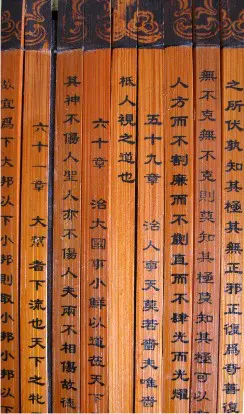 之所伏孰知其極其無正邪正復爲奇善復
無不克無不克則莫知其極莫知其極可以
人方而不割廉而不劌直而不肆光而光耀
五十九章 治人事天莫若嗇夫唯嗇
柢久視之道也
六十章 治大國事小鮮以道莅天下
其神不傷人聖人亦不傷人夫兩不相傷故德
六十一章 大幫者下流也天下之牝
故宜爲下大邦以下小邦則取小邦小邦以